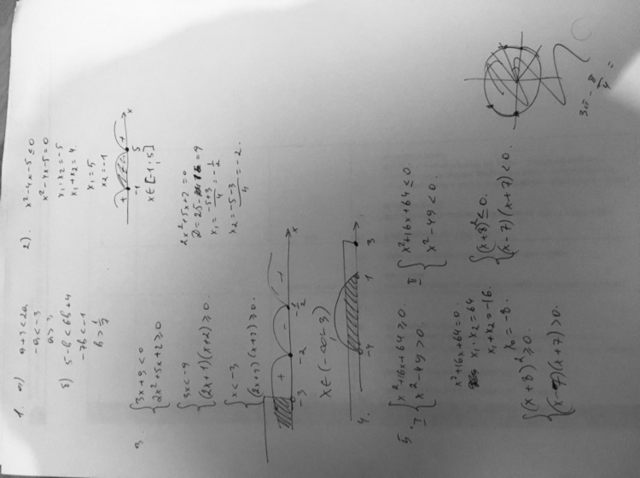 1 а) a+3<2a
-a<-3
a>3
б) 5-b<6b+4
-7b<-1
b>1/7
2). x²-4x-5≤0
x²-4x-5=0
x₁·x₂=-5
x₁+x₂=4
x₁=5
x₂=-1
+ - +
-1 5 x
x∈[-1;5]
3. {3x+9<0
{2x²+5x+2≥0
{3x<-9
{(2x+1)(x+2)≥0.
{x<-3
{(2x+1)(x+2)≥0.
2x²+5x+2=0
D=25-16=9
x₁=(-5+3)/4=-1/2
x₂=(-5-3)/4=-2.
+ - +
-3 -2 -1/2 x
x∈(-∞;-3)
4.
-4 1 3
5. I {x²+16x+64≥0.
{x²-49>0.
x²+16x+64=0.
x₁·x₂=64
x₁+x₂=-16.
x₀=-8.
{(x+8)²≥0.
{(x-7)(x+7)>0.
II {x²+16x+64≤0.
{x²-49<0.
{(x+8)²≤0.
{(x-7)(x+7)<0.